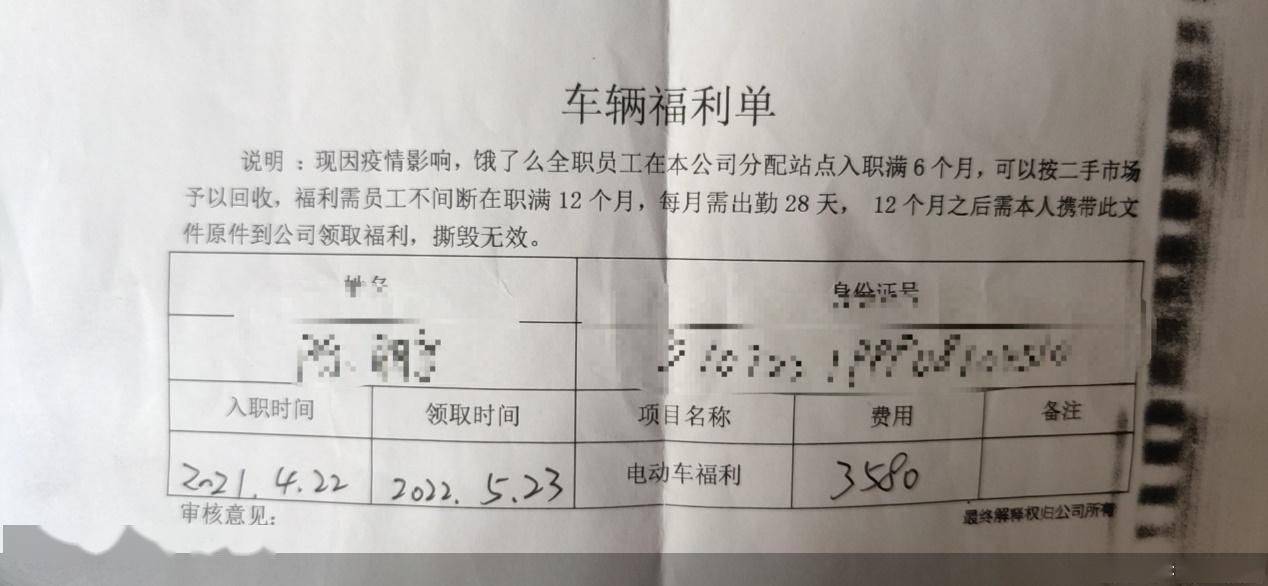 车辆福利单
说明：现因疫情影响，饿了么全职员工在本公司分配站点入职满6个月，可以按二手市场
予以回收，福利需员工不间断在职满12个月，每月需出勤28天， 12个月之后需本人携带此文
件原件到公司领取福利，撕毁无效。
姓名 身份证号
入职时间 领取时间 项目名称 费用 备注
2021.4.22 2022.5.23 电动车福利 3580
审核意见： 最终解释权归公司所有